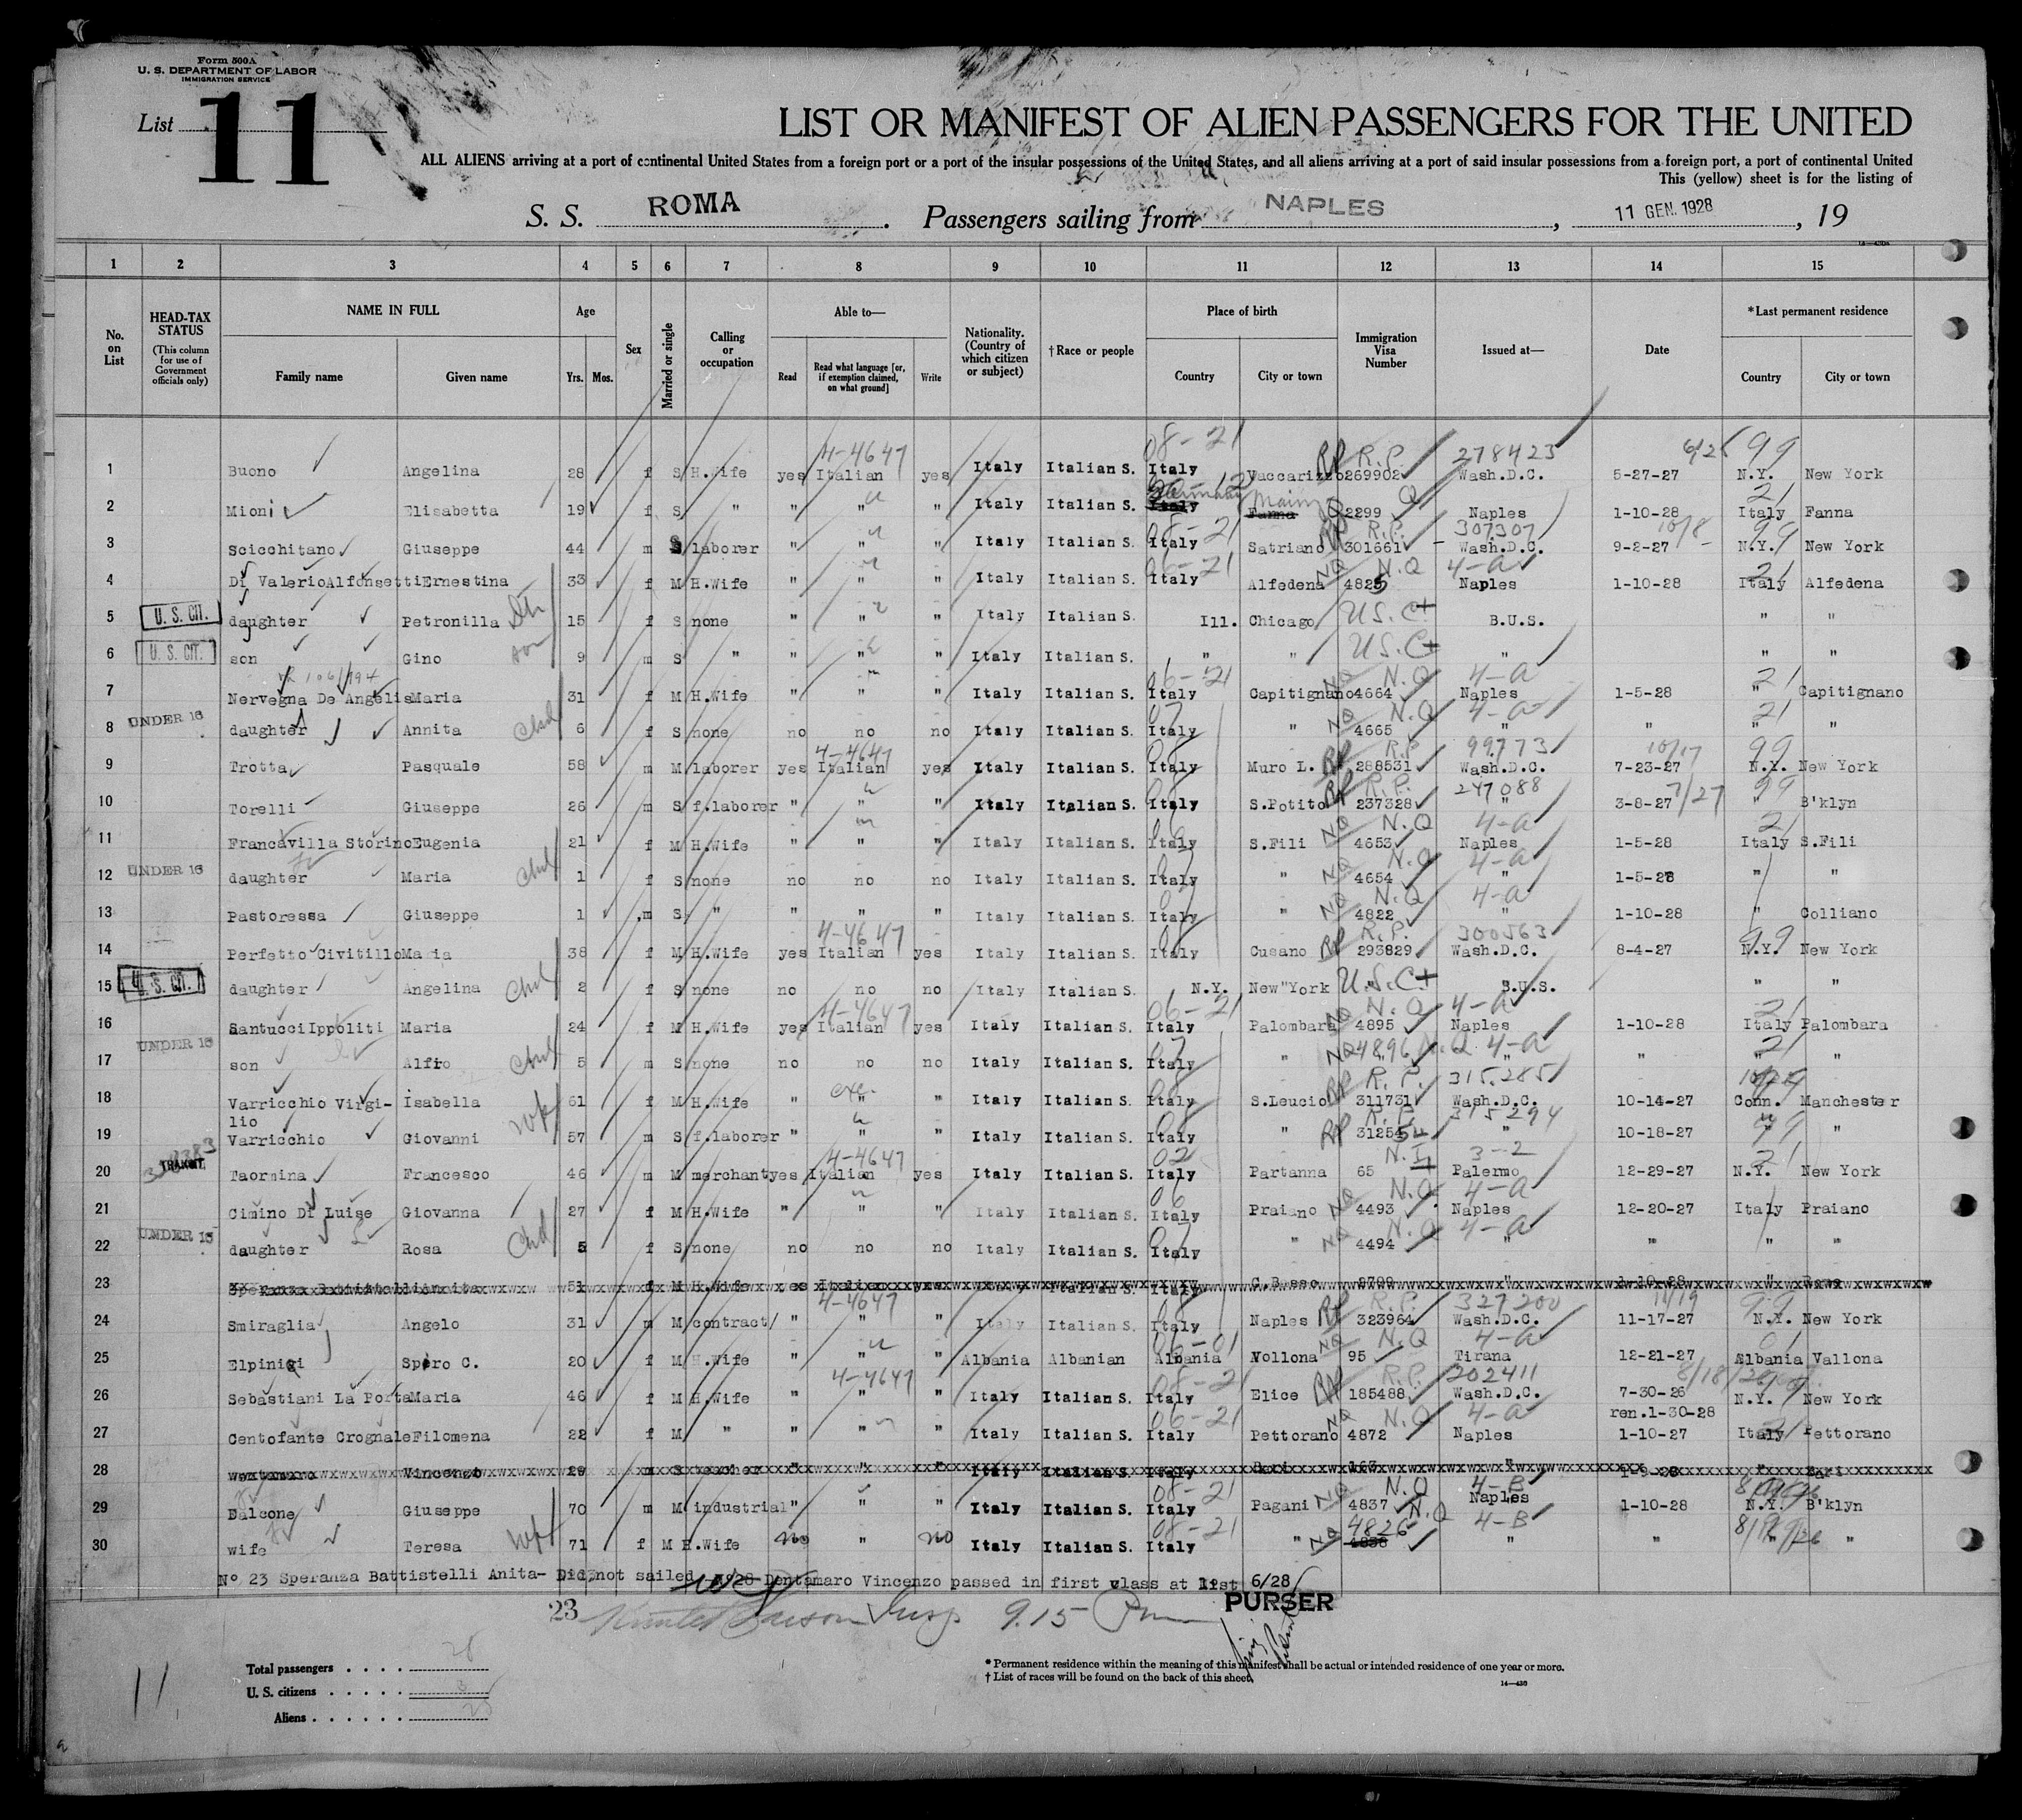 Form 500A
U. S. DEPARTMENT OF LABOR
IMMIGRATION SERVICE
List 11
LIST OR MANIFEST OF ALIEN PASSENGERS FOR THE UNITED
ALL ALIENS arriving at a port of continental United States from a foreign port or a port of the insular possessions of the United States, and all aliens arriving at a port of said insular possessions from a foreign port, a port of continental United
This (yellow) sheet is for the listing of
S. S. ROMA. Passengers sailing from NAPLES, 11 GEN. 1928, 19
1 2 3 4 5 6 7 8 9 10 11 12 13 14 15
No. on List
HEAD-TAX STATUS (This column for use of Government officials only)
NAME IN FULL Family name Given name
Age Yrs. Mos.
Sex
Married or single
Calling or occupation
Able to— Read Read what language [or, if exemption claimed, on what ground] Write
Nationality. (Country of which citizen or subject)
† Race or people
Place of birth Country City or town
Immigration Visa Number
Issued at—
Date
*Last permanent residence Country City or town
4-4647 08-21 R.P. 278423 99
1 Buono Angelina 28 f S H.Wife yes Italian yes Italy Italian S. Italy Vaccarizzo 269902 Wash.D.C. 5-27-27 N.Y. New York
2 Mioni Elisabetta 19 f S " " " " Italy Italian S. Italy Fanna 2299 Naples 1-10-28 Italy Fanna
R.P. 307307 10/8 99
3 Scicchitano Giuseppe 44 m S laborer " " " Italy Italian S. Italy Satriano 301661 Wash.D.C. 9-2-27 N.Y. New York
06-21 NQ N.Q 4-a 21
4 Di Valerio Alfonsetti Ernestina 33 f M H.Wife " " " Italy Italian S. Italy Alfedena 4825 Naples 1-10-28 Italy Alfedena
5 U. S. CIT. daughter Petronilla 15 f S none " " " Italy Italian S. Ill. Chicago U.S.Ct B.U.S. " "
6 U. S. CIT. son Gino son 9 m S " " " " Italy Italian S. " " U.S.Ct " " "
06-21 NQ N.Q 4-a 21
7 Nervegna De Angelis Maria 31 f M H.Wife " " " Italy Italian S. Italy Capitignano 4664 Naples 1-5-28 " Capitignano
NQ N.Q 4-a 21
8 UNDER 16 daughter Annita Chd 6 f S none no no no Italy Italian S. Italy " 4665 " " " "
4-4647 R.P. 99773 10/17 99
9 Trotta Pasquale 58 m M laborer yes Italian yes Italy Italian S. Italy Muro L. 288531 Wash.D.C. 7-23-27 N.Y. New York
R.P. 247088 7/27 99
10 Torelli Giuseppe 26 m S f.laborer " " " Italy Italian S. Italy S.Potito 237328 " 3-8-27 " B'klyn
NQ N.Q 4-a 21
11 Francavilla Storino Eugenia 21 f M H.Wife " " " Italy Italian S. Italy S.Fili 4653 Naples 1-5-28 Italy S.Fili
NQ N.Q 4-a
12 UNDER 16 daughter Maria Chd 1 f S none no no no Italy Italian S. Italy " 4654 " 1-5-28 " "
NQ N.Q 4-a
13 Pastoressa Giuseppe 1 m S " " " " Italy Italian S. Italy " 4822 " 1-10-28 " Colliano
4-4647 R.P. 300563 99
14 Perfetto Civitillo Maria 38 f M H.Wife yes Italian yes Italy Italian S. Italy Cusano 293829 Wash.D.C. 8-4-27 N.Y. New York
15 U. S. CIT. daughter Angelina Chd 2 f S none no no no Italy Italian S. N.Y. New York U.S.Ct B.U.S. " "
4-4647 06-21 NQ N.Q 4-a 21
16 Santucci Ippoliti Maria 24 f M H.Wife yes Italian yes Italy Italian S. Italy Palombara 4895 Naples 1-10-28 Italy Palombara
17 UNDER 16 son Alfro Chd 5 m S none no no no Italy Italian S. Italy " NQ 4896 N.Q 4-a " " 21 " "
R.P. 315.285
18 Varricchio Virgi- Isabella wf 61 f M H.Wife " " " Italy Italian S. Italy S.Leucio 311731 Wash.D.C. 10-14-27 Conn. Manchester
lio R.P. 315294
19 Varricchio Giovanni 57 m S f.laborer " " " Italy Italian S. Italy " 31254 " 10-18-27 " "
TRANSIT 4-4647 02 N.I. 3-2 21
20 Taormina Francesco 46 m M merchant yes Italian yes Italy Italian S. Italy Partanna 65 Palermo 12-29-27 N.Y. New York
06 NQ N.Q 4-a
21 Cimino Di Luise Giovanna 27 f M H.Wife " " " Italy Italian S. Italy Praiano 4493 Naples 12-20-27 Italy Praiano
NQ N.Q 4-a
22 UNDER 16 daughter Rosa Chd 5 f S none no no no Italy Italian S. Italy " 4494 " " " "
23 51 f M H.Wife Italian S. Italy 1-10-28
4-4647 R.P. 327200 11/19 99
24 Smiraglia Angelo 31 m M contract " " " Italy Italian S. Italy Naples 323964 Wash.D.C. 11-17-27 N.Y. New York
06-01 NQ N.Q 4-a 01
25 Elpinici Spiro C. 20 f M H.Wife " " " Albania Albanian Albania Vollona 95 Tirana 12-21-27 Albania Vallona
4-4647 08-21 R.P. 202411
26 Sebastiani La Porta Maria 46 f M H.Wife " " " Italy Italian S. Italy Elice 185488 Wash.D.C. 7-30-26 N.Y. New York
ren.1-30-28
06-21 NQ N.Q 4-a 21
27 Centofante Crognale Filomena 22 f M " " " " Italy Italian S. Italy Pettorano 4872 Naples 1-10-27 Italy Pettorano
28 Vincenzo 29 m S teacher " " " Italy Italian S. Italy Bari 163 " Bari
08-21 NQ N.Q 4-B
29 Falcone Giuseppe 70 m M industrial " " " Italy Italian S. Italy Pagani 4837 Naples 1-10-28 N.Y. B'klyn
08-21 NQ 4826 N.Q 4-B
30 wife Teresa wf 71 f M H.Wife no " no Italy Italian S. Italy " 4838 " " " "
N° 23 Speranza Battistelli Anita- Did not sailed - N°28 Dentamaro Vincenzo passed in first class at list 6/28
PURSER
23 Insp 9.15 Pm
Total passengers . . . . 28
U. S. citizens . . . . . 3
Aliens . . . . . .
11
* Permanent residence within the meaning of this manifest shall be actual or intended residence of one year or more.
† List of races will be found on the back of this sheet.
14—430